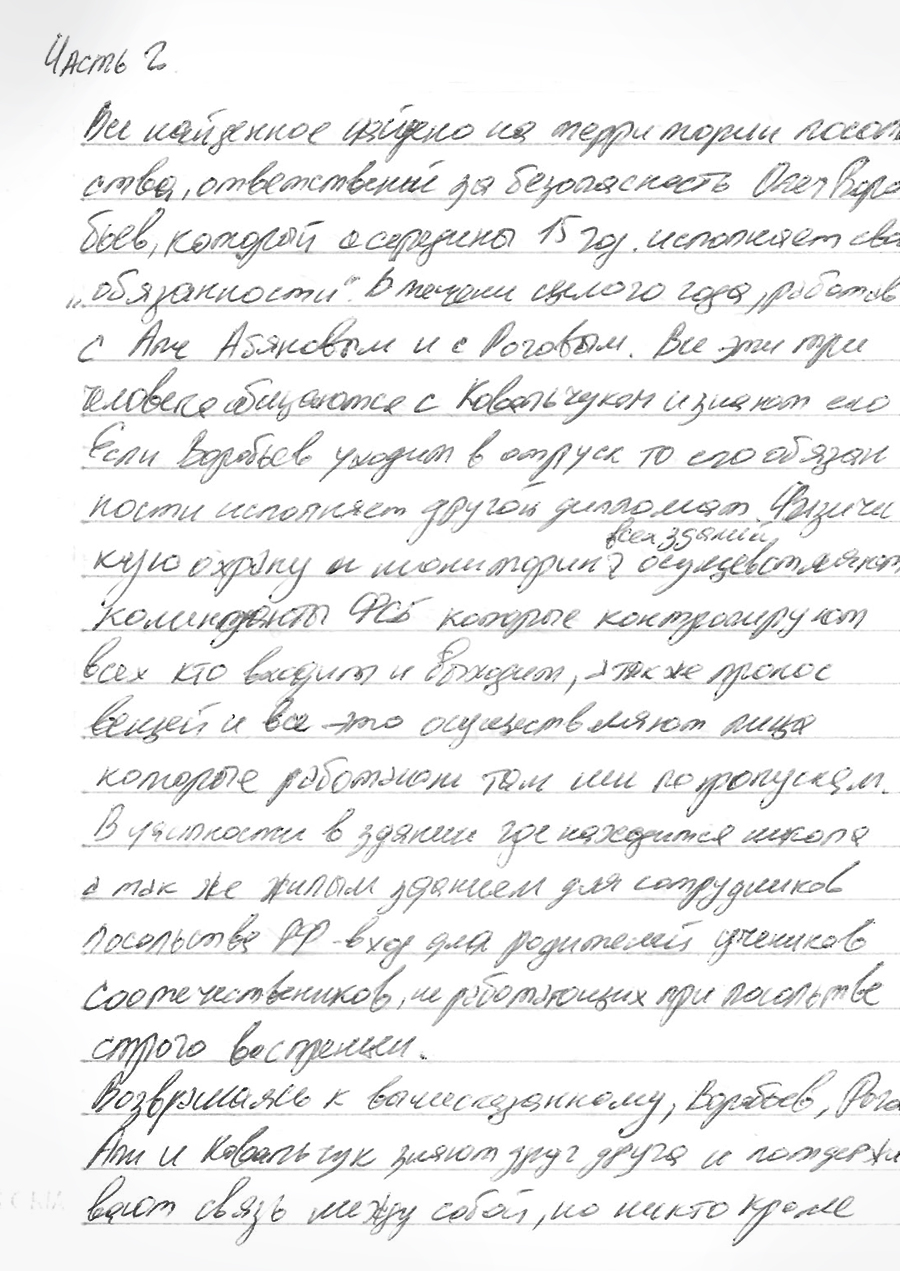 Часть 2
Все найденное найдено на территории посоль
ства, ответственный за безопасность Олег Воро
бьев, который с середины 15 год. исполняет сво
„обязанности". В течени целого года, работав
с Али Абяновым и с Роговым. Все эти три
человека общаются с Ковальчуком и знают его
Если Воробьев уходит в отпуск то его обязан
ности исполняет другой дипломат. Физиче
скую охрану и мониторинг всех зданий осущевствляют
коминданты ФСБ которые контролируют
всех кто входит и выходит, а так же пронос
вещей и все это осуществляют лица
которые работают там или по пропускам.
В частности в здании где находится школа
а так же жилым зданием для сотрудников
посольства РФ - вход для родителей учеников
соотечественников, не работающих при посольстве
строго воспрещен.
Возвращаясь к вычисказанному, Воробьев, Рого
Али и Ковальчук знают друг друга и поддержи
вают связь между собой, но никто кроме